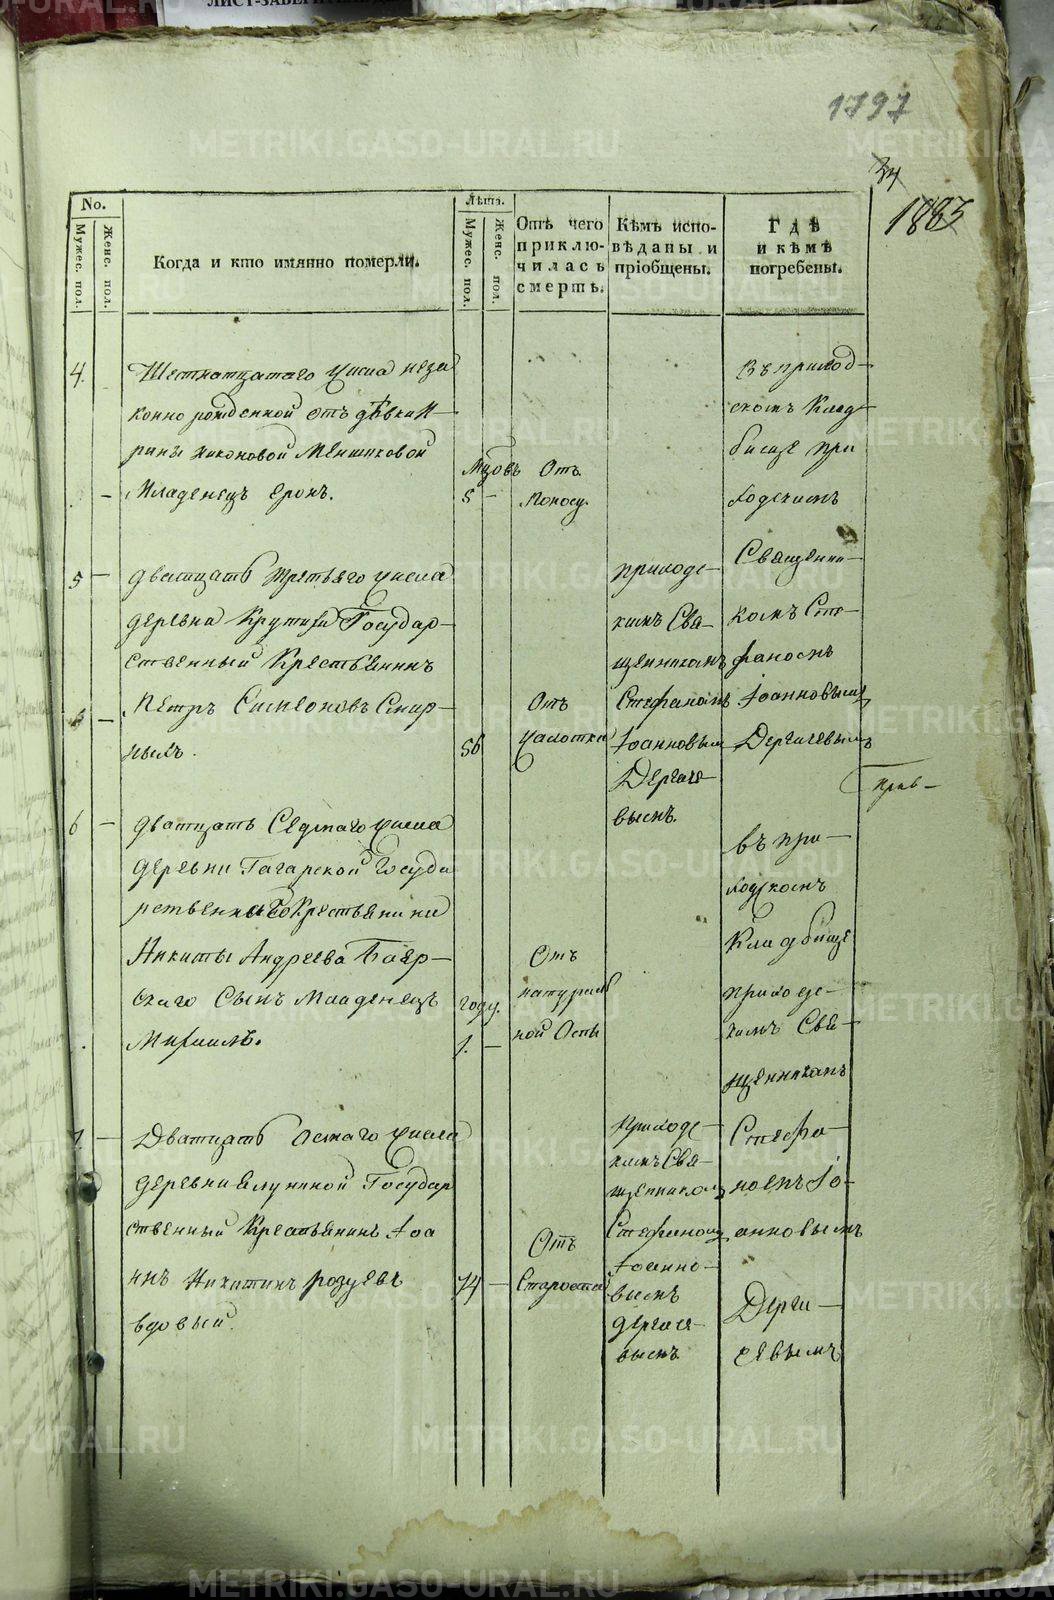 1797
34
1883
No.
Мужес. пол.
Женс. пол.
Когда и кто имянно померли.
Лѣта.
Мужес. пол.
Женс. пол.
Отъ чего
приклю-
чилась
смерть.
Кѣмъ испо-
вѣданы и
пріобщены.
Гдѣ
и кѣмъ
погребены.
4.
Шестнатцатаго числа неза
конно рожденной отъ дѣвки И-
рины Никоновой Меншиковой
Младенецъ
5 -
Отъ
поносу.
въ приход-
скомъ клад-
бище при
ходскимъ
5 -
дватцать третьяго числа
деревни Крутихи Государ-
ственный Крестьянинъ
Петръ Симеоновъ Смир-
ныхъ.
56
отъ
чахотки
приходс-
кимъ Свя-
щенникомъ
Стефаномъ
Іоанновымъ
Дергаче-
вымъ.
Священни-
комъ Сте-
фаномъ
Іоанновымъ
Дергачевымъ
6 -
дватцать Седмаго числа
деревни Гагарской Госуда
рственнаго Крестьянина
Никиты Андреева Баяр-
скаго Сынъ младенецъ
Михаилъ.
году.
1. -
Отъ
натураль
ной Оспы
въ при-
ходскомъ
Кладбище
приходс-
кимъ Свя-
щенникомъ
7 -
Дватцать осмаго числа
деревни Елуниной Государ
ственный Крестьянинъ Іоа
ннъ Никитинъ
вдовый.
74 -
Отъ
Старости
приходс-
кимъ Свя-
щенникомъ
Стефаномъ
Іоанно-
вымъ
дергаче-
вымъ
Стефа-
номъ Іо-
анновымъ
Дерга-
чевымъ
METRIKI.GASO-URAL.RU